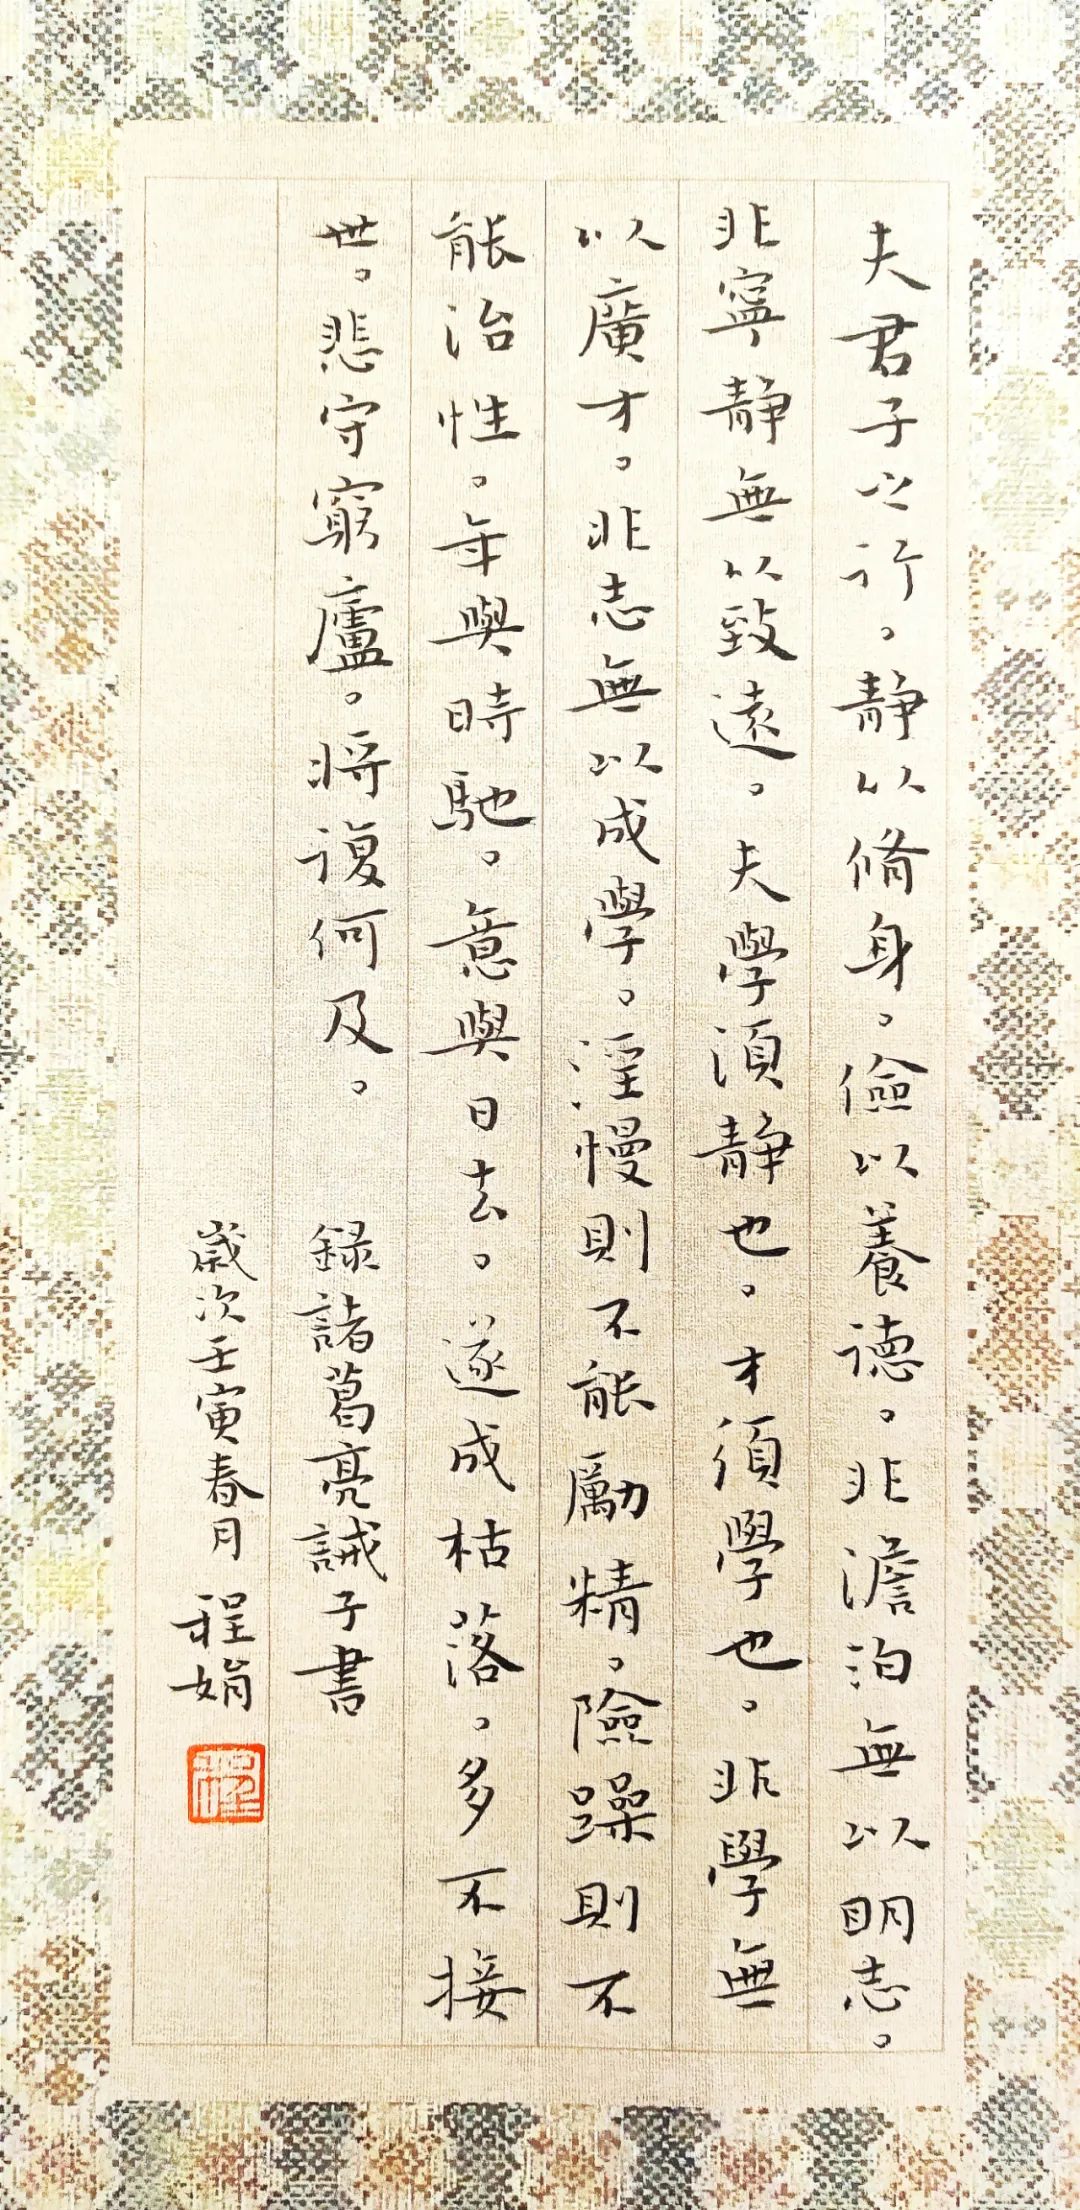 夫君子之行。静以脩身。儉以養德。非澹泊無以明志。
非寧静無以致遠。夫學須静也。才須學也。非學無
以廣才。非志無以成學。淫慢則不能勵精。險躁則不
能治性。年與時馳。意與日去。遂成枯落。多不接
世。悲守窮廬。将復何及。 録諸葛亮誡子書
歲次壬寅春月 程娟